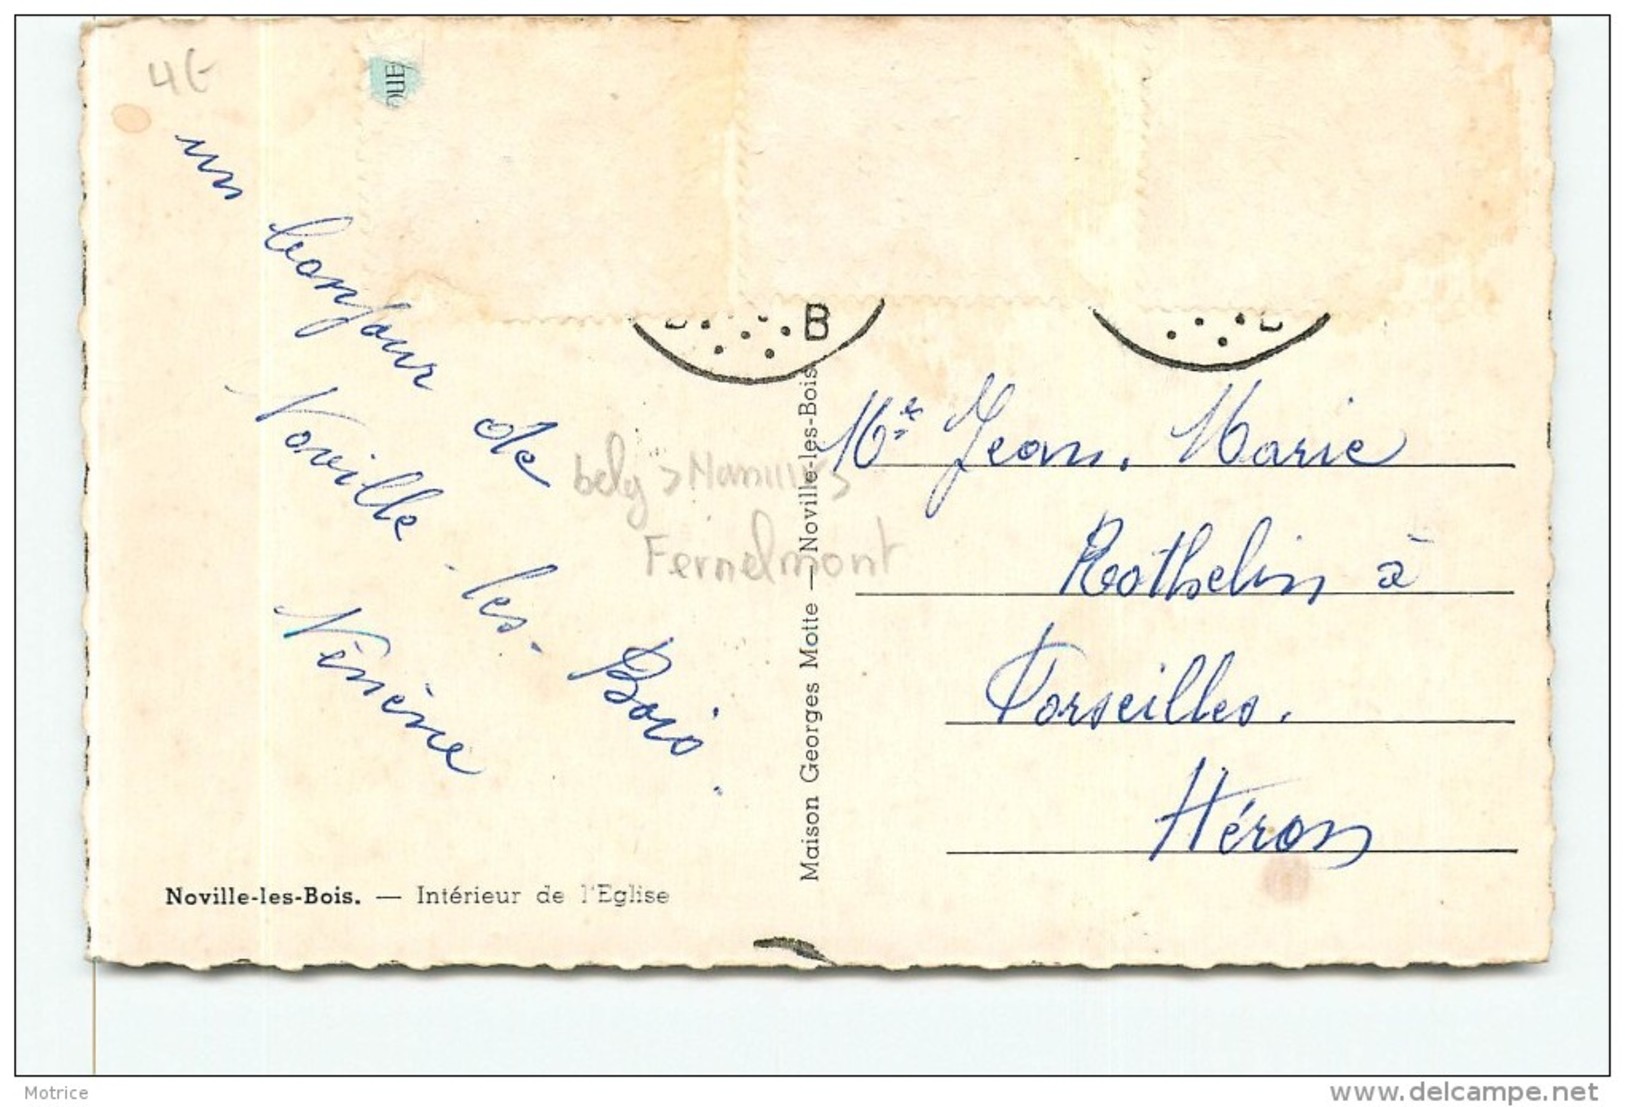 4€
QUE
un
bonjour de
Noville - les - Bois.
Nénène
belg > Namur
Fernelmont
B
B
Mr Jean. Marie
Rothelin à
Vorseilles.
Héron
Maison Georges Motte — Noville-les-Bois
Noville-les-Bois. — Intérieur de l'Eglise
Motrice
www.delcampe.net